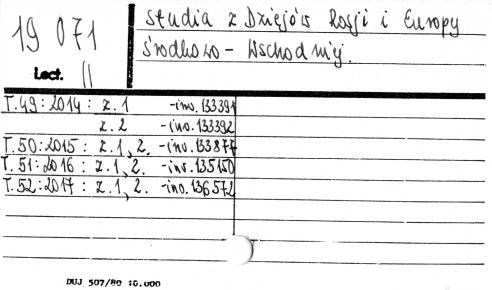 19 071
Lect. II
Studia z Dziejów Rosji i Europy
Środkowo - Wschodniej.
T. 49 : 2014 : z. 1 - inv. 133391
z. 2 - inv. 133392
T. 50 : 2015 : z. 1, 2. - inv. 133877
T. 51 : 2016 : z. 1, 2. - inv. 135150
T. 52 : 2017 : z. 1, 2. - inv. 136572
DUJ 507/80 10.000